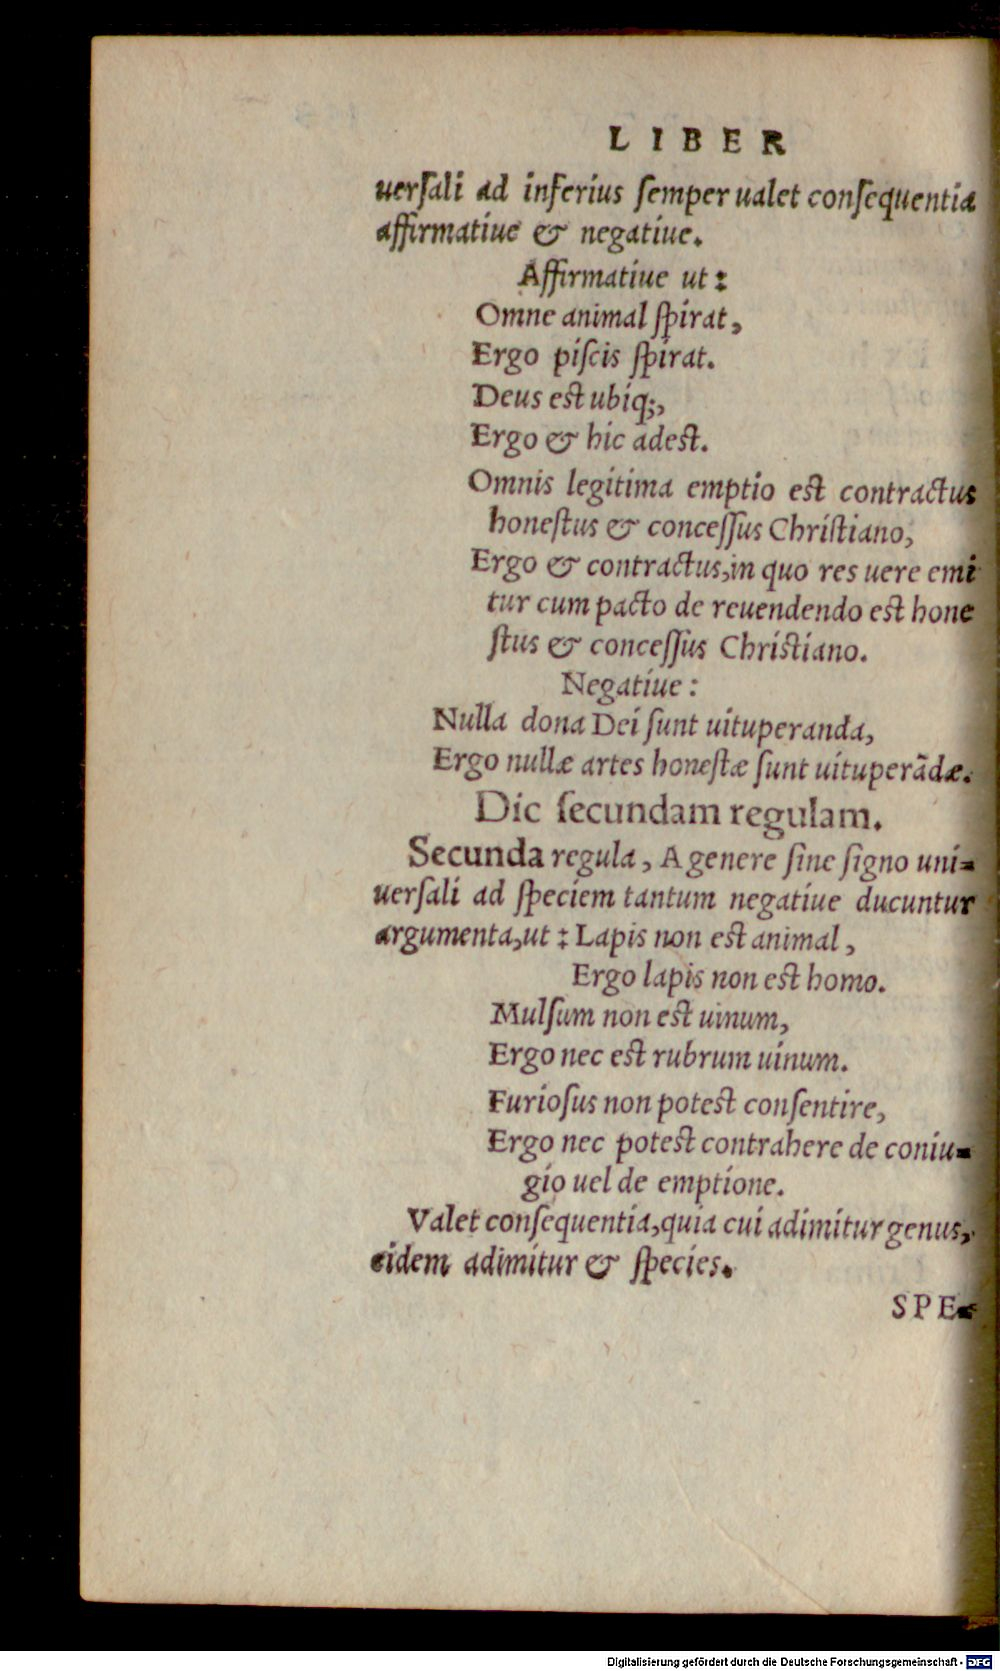 LIBER
uerſali ad inferius ſemper ualet conſequentia
affirmatiue & negatiue.
Affirmatiue ut:
Omne animal ſpirat,
Ergo piſcis ſpirat.
Deus est ubiq;,
Ergo & hic adest.
Omnis legitima emptio est contractus
honeſtus & conceſſus Chriſtiano,
Ergo & contractus,in quo res uere emi
tur cum pacto de reuendendo est hone
ſtus & conceſſus Chriſtiano.
Negatiue:
Nulla dona Dei ſunt uituperanda,
Ergo nullæ artes honeſtæ ſunt uituperãdæ.
Dic ſecundam regulam.
Secunda regula, A genere ſine ſigno uni=
uerſali ad ſpeciem tantum negatiue ducuntur
argumenta,ut: Lapis non est animal,
Ergo lapis non est homo.
Mulſum non est uinum,
Ergo nec est rubrum uinum.
Furioſus non potest conſentire,
Ergo nec potest contrahere de coniu=
gio uel de emptione.
Valet conſequentia,quia cui adimitur genus,
eidem adimitur & ſpecies.
SPE=
Digitalisierung gefördert durch die Deutsche Forschungsgemeinschaft - DFG